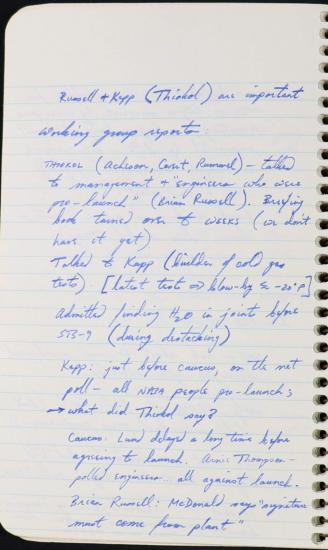 Russell + Kapp (Thiokol) are important
Working group reports:
THIOKOL (Acheson, Covert, Rummel) - talked
to management + "engineers who were
pro-launch" (Brian Russell). Briefing
book turned over to WEEKS (we don't
have it yet)
Talked to Kapp (builder of cold gas
tests). [latest tests blow-by -20°F]
Admitted finding H2O in joint before
STS-9 (during destacking)
Kapp: just before caucus, on the net
poll - all NASA people pro-launch;
→ what did Thiokol say?
Caucus: Lund delayed a long time before
agreeing to launch. Arnie Thompson -
polled engineers... all against launch.
Brian Russell: McDonald says "signature
must come from plant"